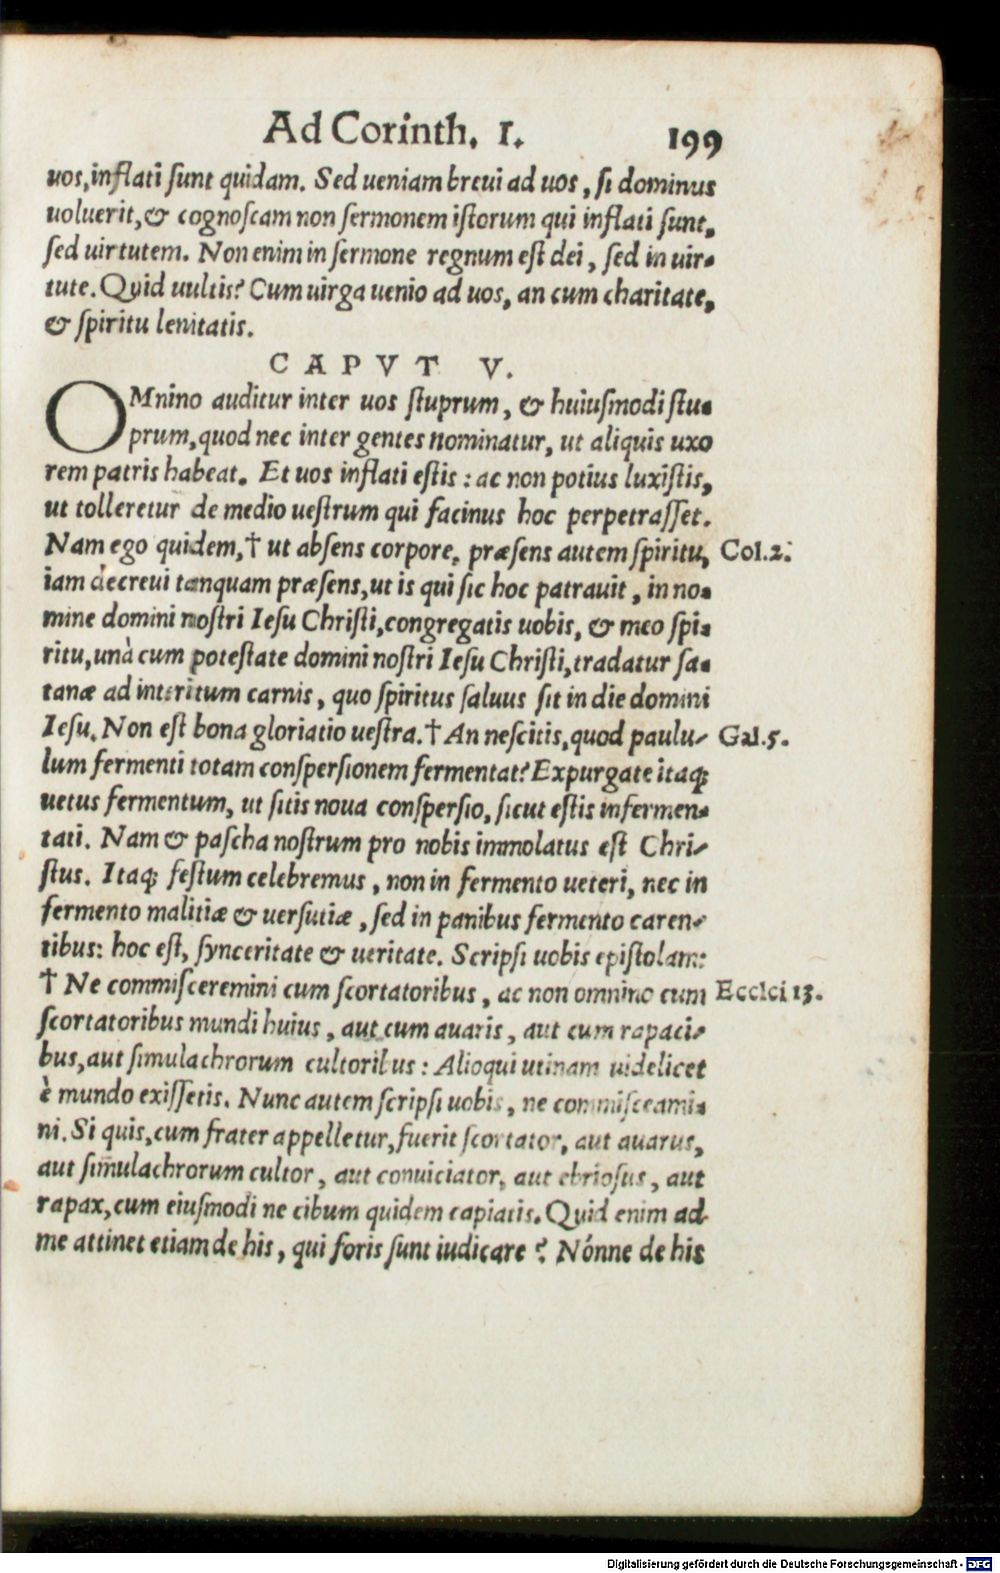 Ad Corinth. 1. 199
uos, inflati ſunt quidam. Sed ueniam breui ad uos, ſi dominus
uoluerit, & cognoſcam non ſermonem iſtorum qui inflati ſunt,
ſed uirtutem. Non enim in ſermone regnum eſt dei, ſed in uir-
tute. Quid uultis? Cum uirga uenio ad uos, an cum charitate,
& ſpiritu lenitatis.
CAPVT V.
OMnino auditur inter uos ſtuprum, & huiuſmodi ſtu-
prum, quod nec inter gentes nominatur, ut aliquis uxo
rem patris habeat. Et uos inflati eſtis: ac non potius luxiſtis,
ut tolleretur de medio ueſtrum qui facinus hoc perpetraſſet.
Nam ego quidem, † ut abſens corpore, præſens autem ſpiritu, Col.2.
iam decreui tanquam præſens, ut is qui ſic hoc patrauit, in no-
mine domini noſtri Ieſu Chriſti, congregatis uobis, & meo ſpi-
ritu, unà cum poteſtate domini noſtri Ieſu Chriſti, tradatur ſa-
tanæ ad interitum carnis, quo ſpiritus ſaluus ſit in die domini
Ieſu. Non eſt bona gloriatio ueſtra. † An neſcitis, quod paulu- Gal.5.
lum fermenti totam conſperſionem fermentat? Expurgate itaq;
uetus fermentum, ut ſitis noua conſperſio, ſicut eſtis infermen-
tati. Nam & paſcha noſtrum pro nobis immolatus eſt Chri-
ſtus. Itaq; feſtum celebremus, non in fermento ueteri, nec in
fermento malitiæ & uerſutiæ, ſed in panibus fermento caren-
tibus: hoc eſt, ſynceritate & ueritate. Scripſi uobis epiſtolam:
† Ne commiſceremini cum ſcortatoribus, ac non omnino cum Eccleſi 13.
ſcortatoribus mundi huius, aut cum auaris, aut cum rapaci-
bus, aut ſimulachrorum cultoribus: Alioqui utinam uidelicet
è mundo exiſſetis. Nunc autem ſcripſi uobis, ne commiſceami-
ni. Si quis, cum frater appelletur, fuerit ſcortator, aut auarus,
aut ſimulachrorum cultor, aut conuiciator, aut ebrioſus, aut
rapax, cum eiuſmodi ne cibum quidem capiatis. Quid enim ad
me attinet etiam de his, qui foris ſunt iudicare? Nónne de his
Digitalisierung gefördert durch die Deutsche Forschungsgemeinschaft - DFG